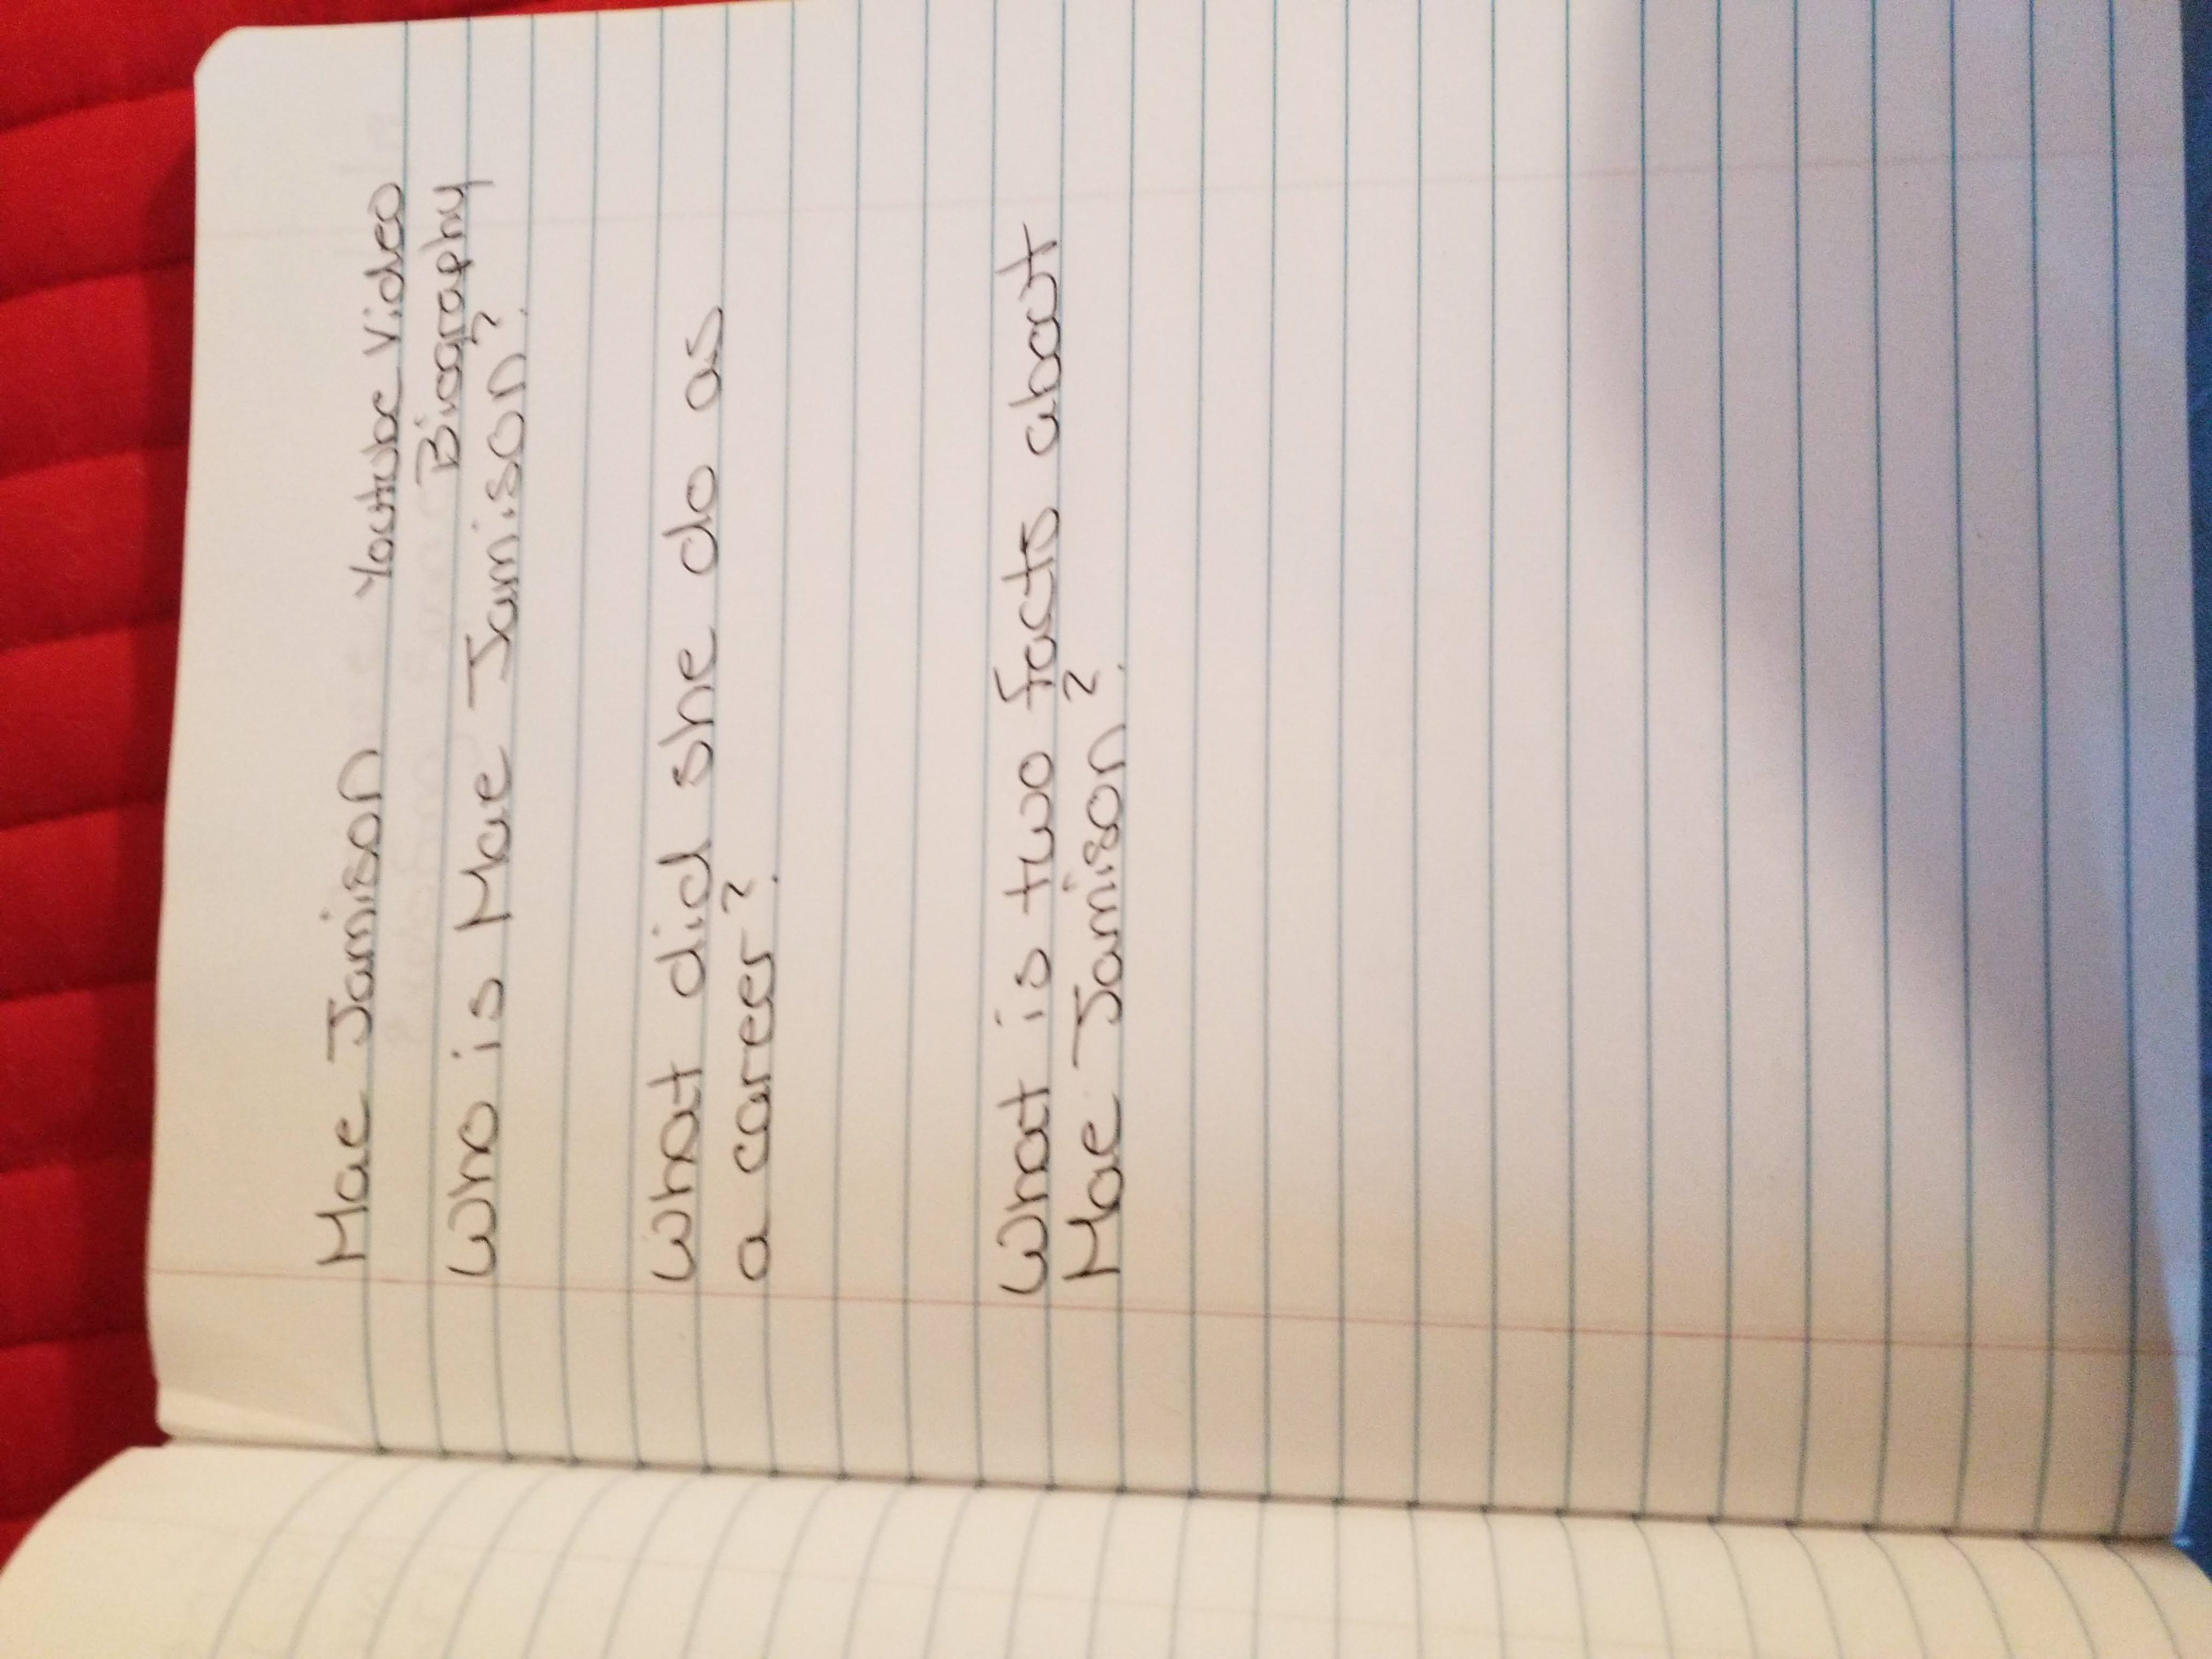 Mae Jamison Youtube Video
Biography
Who is Mae Jamison?
What did she do as
a career?
What is two facts about
Mae Jamison?